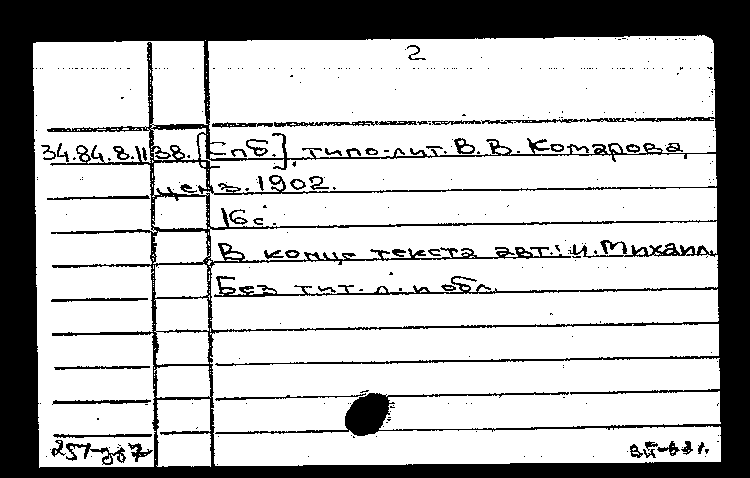 2
34.84.8.1138. [Спб.], типо-лит. В. В. Комарова,
ценз. 1902.
16 с.
В конце текста авт.: и. Михаил.
Без тит. л. и обл.